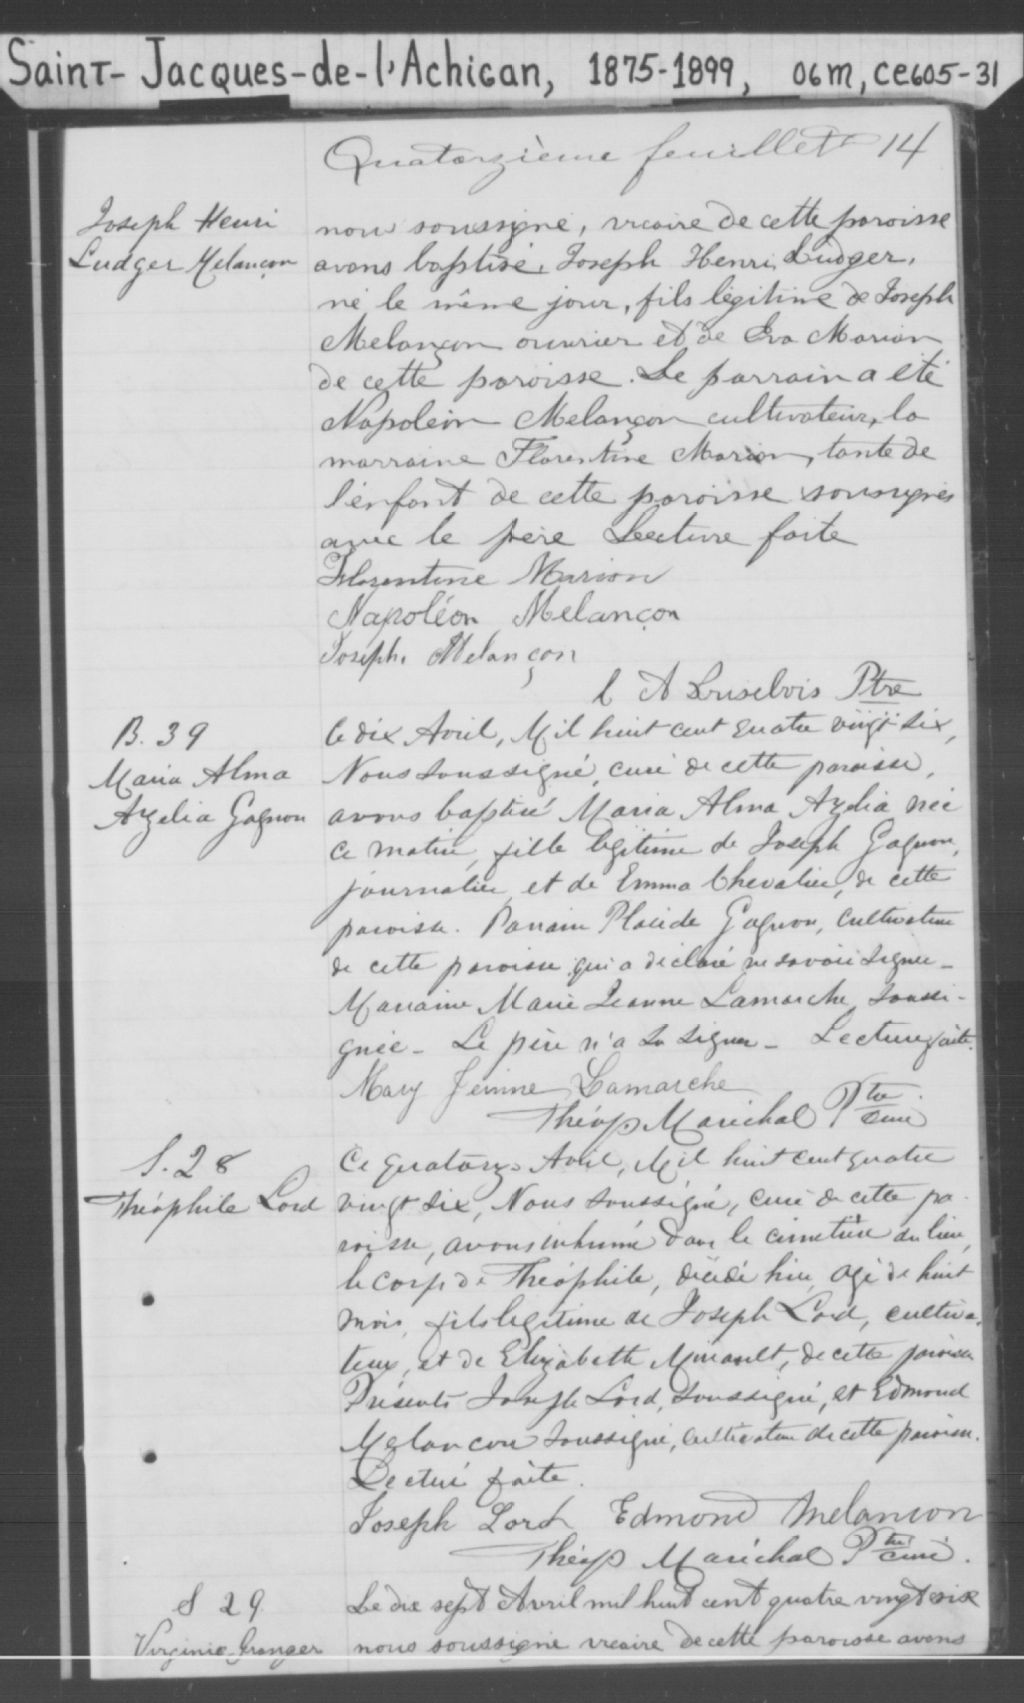 Saint-Jacques-de-l'Achigan, 1875-1899, 06M, CE605-31
Quatorzième feuillet 14
Joseph Henri
Ludger Melançon
nous soussigné, vicaire de cette paroisse
avons baptisé, Joseph Henri Ludger,
né le même jour, fils légitime de Joseph
Melançon ouvrier et de Eva Marion
de cette paroisse. Le parrain a été
Napoléon Melançon cultivateur, la
marraine Florentine Marion, tante de
l'enfant de cette paroisse soussignés
avec le père Lecture faite
Florentine Marion
Napoléon Melançon
Joseph Melançon
A Ptre
B. 39
Maria Alma
Azelia Gagnon
Ce dix Avril, Mil huit cent quatre vingt six,
Nous soussigné, curé de cette paroisse,
avons baptisé Maria Alma Azelia née
ce matin, fille légitime de Joseph Gagnon,
journalier et de Emma Chevalier, de cette
paroisse. Parrain Placide Gagnon, cultivateur
de cette paroisse qui a déclaré ne savoir signer -
Marraine Marie Jeanne Lamarche soussi-
gnée - Le père n'a su signer - Lecture faite.
Mary Jeinne Lamarche
Théop Maréchal Ptre curé
S. 28
Théophile Lord
Ce quatorze Avril, Mil huit cent quatre
vingt six, Nous soussigné, curé de cette pa-
roisse, avons inhumé dans le cimetière du lieu,
le corps de Théophile, décédé hier, agé de huit
mois, fils légitime de Joseph Lord, cultiva-
teur, et de Elizabeth Mirault, de cette paroisse
Présents Joseph Lord, soussigné, et Edmond
Melançon soussigné, cultivateur de cette paroisse.
Lecture faite.
Joseph Lord Edmond Melancon
Théop Maréchal Ptre curé.
S 29
Virginie Granger
Le dix sept Avril mil huit cent quatre vingt six
nous soussigné vicaire de cette paroisse avons